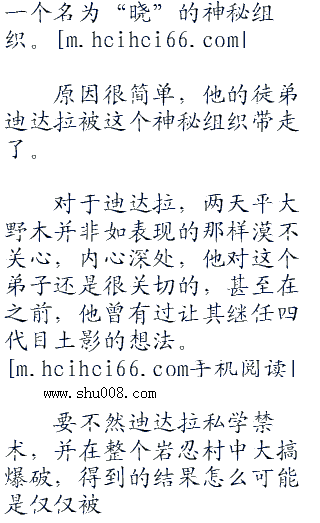 一个名为“晓”的神秘组
织。[m.hcihci66.com|
原因很简单，他的徒弟
迪达拉被这个神秘组织带走
了。
对于迪达拉，两天平大
野木并非如表现的那样漠不
关心，内心深处，他对这个
弟子还是很关切的，甚至在
之前，他曾有过让其继任四
代目土影的想法。
[m.hcihci66.com手机阅读|
www.shu008.com
要不然迪达拉私学禁
术，并在整个岩忍村中大搞
爆破，得到的结果怎么可能
是仅仅被